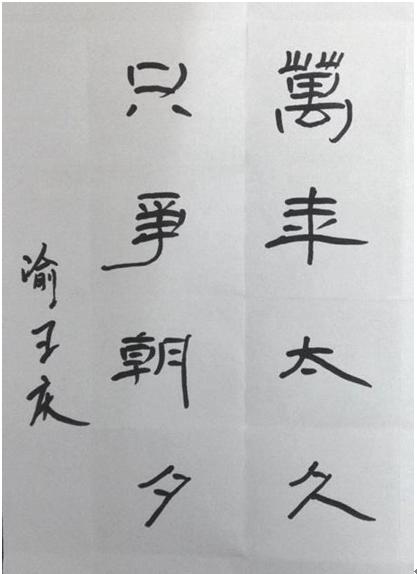 萬年太久
只爭朝夕
渝王庆